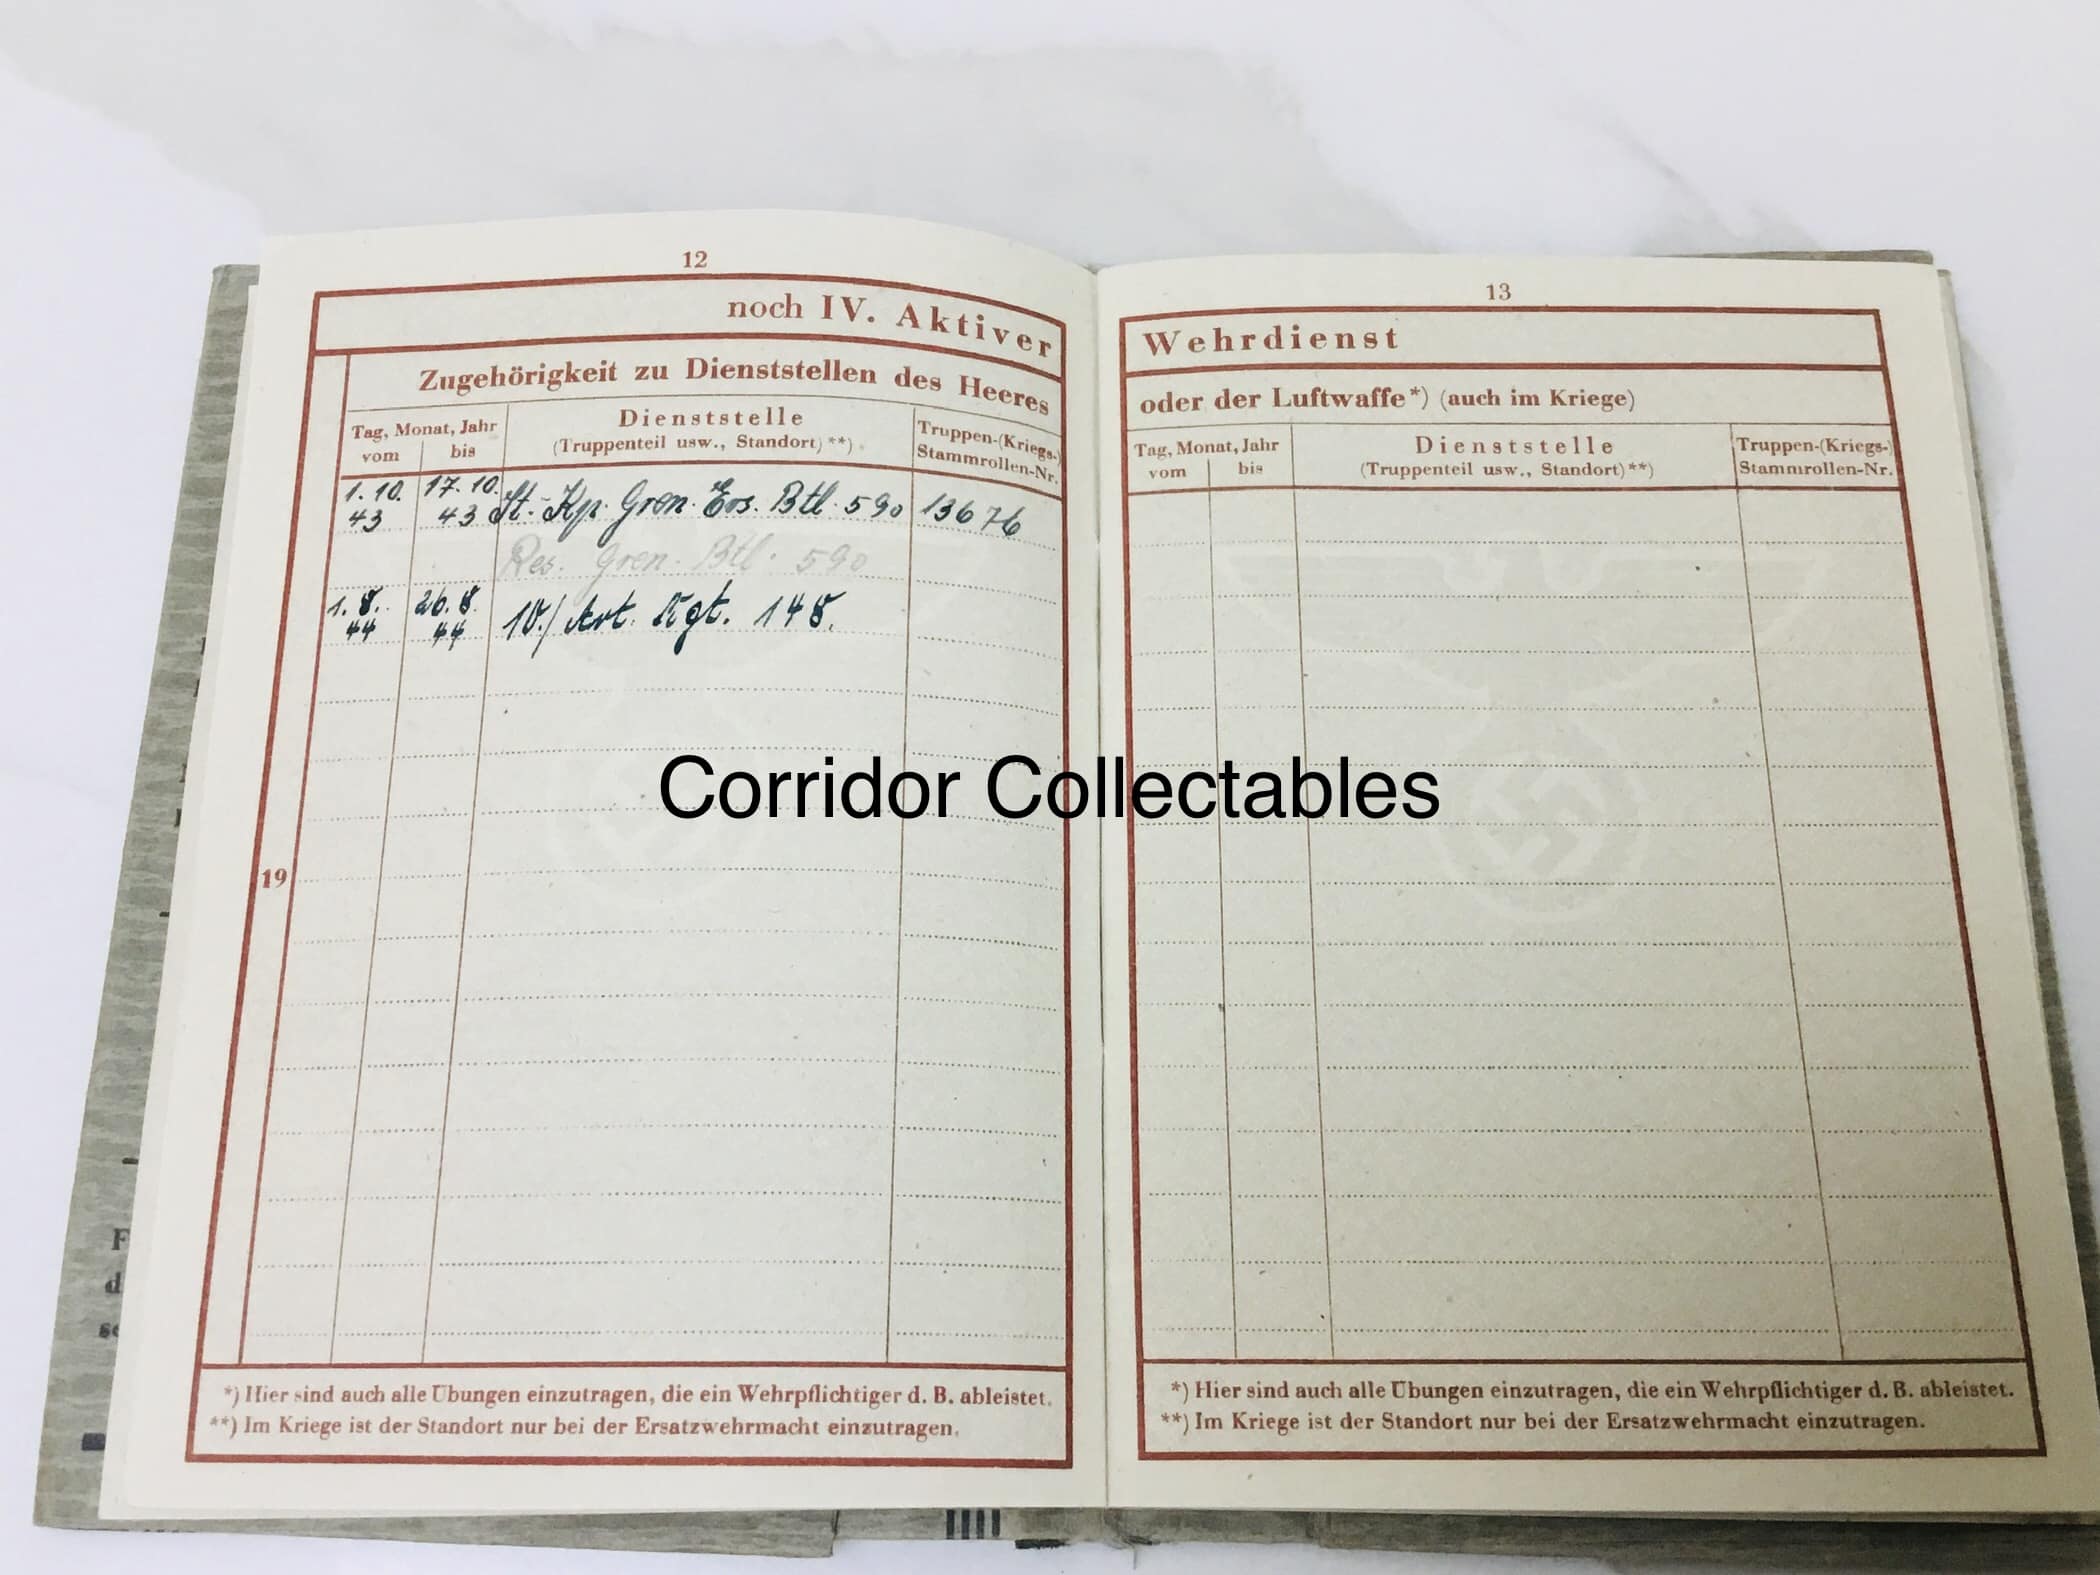 12
noch IV. Aktiver
Zugehörigkeit zu Dienststellen des Heeres
Tag, Monat, Jahr
vom
bis
Dienststelle
(Truppenteil usw., Standort)**)
Truppen-(Kriegs-)
Stammrollen-Nr.
1. 10. 43
17. 10. 43
St.-Kp. Gren. Ers. Btl. 590
13676
Res. Gren. Btl. 590
1. 8. 44
26. 8. 44
10./ Art. Rgt. 148.
19
*) Hier sind auch alle Übungen einzutragen, die ein Wehrpflichtiger d. B. ableistet.
**) Im Kriege ist der Standort nur bei der Ersatzwehrmacht einzutragen.
13
Wehrdienst
oder der Luftwaffe*) (auch im Kriege)
Tag, Monat, Jahr
vom
bis
Dienststelle
(Truppenteil usw., Standort)**)
Truppen-(Kriegs-)
Stammrollen-Nr.
*) Hier sind auch alle Übungen einzutragen, die ein Wehrpflichtiger d. B. ableistet.
**) Im Kriege ist der Standort nur bei der Ersatzwehrmacht einzutragen.
Corridor Collectables